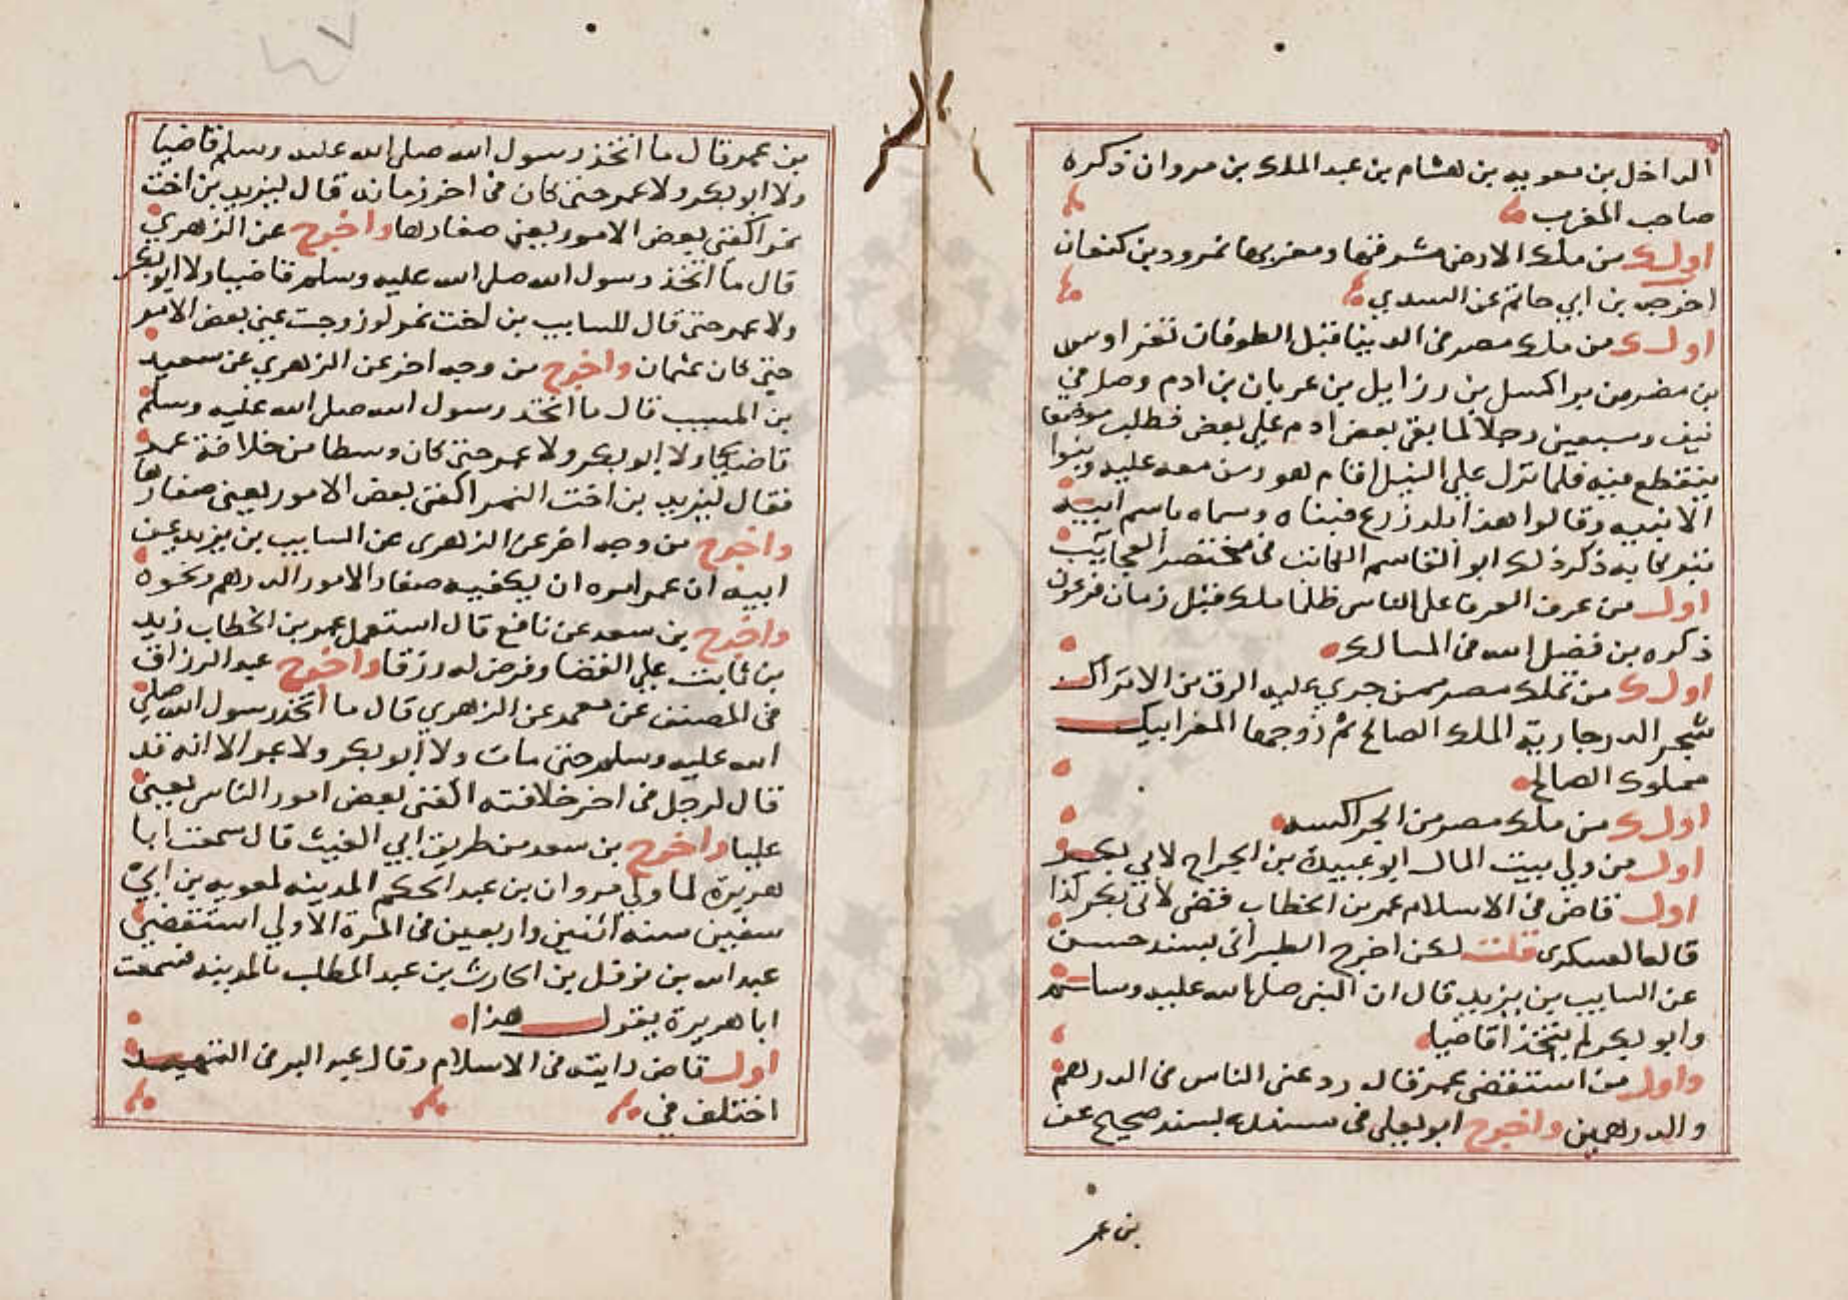 الداخل بن معويه بن هشام بن عبد الملك بن مروان ذكره
صاحب المغرب
اول من ملك الارض شرقها ومغربها نمرود بن كنعان
اخرجه بن ابي حاتم عن السدي
اول من ملك مصر في الدنيا قبل الطوفان نقراوس
بن مصريم بن براكسل بن رزابيل بن عربان بن ادم وصل في
نيف وسبعين رجلا لما بغى بعض ادم على بعض فطلب موضعا
ينقطع فيه فلما نزل على النيل اقام هو ومن معه عليه وبنوا
الابنيه وقالوا هذا بلد زرع فبناه وسماه باسم ابيه
تبركا به ذكر ذلك ابو القاسم الكاتب في مختصر العجايب
اول من عرف العرفا على الناس ظلما ملك قبل زمان فرعون
ذكره بن فضل الله في المسالك
اول من تملك مصر ممن جري عليه الرق من الاتراك
شجر الدر جارية الملك الصالح ثم زوجها المعز ايبك
مملوك الصالح
اول من ملك مصر من الجراكسه
اول من ولي بيت المال ابو عبيدة بن الجراح لابي بكر
اول قاض في الاسلام عمر بن الخطاب قضى لابي بكر كذا
قاله العسكرى قلت لكن اخرج الطبراني بسند حسن
عن السايب بن يزيد قال ان النبي صلى الله عليه وسلم
وابو بكر لم يتخذا قاضيا
واول من استقضى عمر قال رد عني الناس في الدرهم
والدرهمين واخرج ابو يعلى في مسنده بسند صحيح عن
بن عمر
٤٧
بن عمر قال ما اتخذ رسول الله صلى الله عليه وسلم قاضيا
ولا ابو بكر ولا عمر حتى كان في اخر زمانه قال ليزيد بن اخت
نمر اكفني بعض الامور يعني صغارها واخرج عن الزهري
قال ما اتخذ رسول الله صلى الله عليه وسلم قاضيا ولا ابو بكر
ولا عمر حتى قال للسايب بن اخت نمر لو زوجت عني بعض الامر
حتى كان عثمان واخرج من وجه اخر عن الزهري عن سعيد
بن المسيب قال ما اتخذ رسول الله صلى الله عليه وسلم
قاضيا ولا ابو بكر ولا عمر حتى كان وسطا من خلافة عمر
فقال ليزيد بن اخت النمر اكفني بعض الامور يعني صغارها
واخرج من وجه اخر عن الزهرى عن السايب بن يزيد عن
ابيه ان عمر امره ان يكفيه صغار الامور الدرهم ونحوه
واخرج بن سعد عن نافع قال استعمل عمر بن الخطاب زيد
بن ثابت على القضا وفرض له رزقا واخرج عبد الرزاق
في المصنف عن معمر عن الزهري قال ما اتخذ رسول الله صلى
الله عليه وسلم حتى مات ولا ابو بكر ولا عمر الا انه قد
قال لرجل في اخر خلافته اكفني بعض امور الناس يعني
عليا واخرج بن سعد من طريق ابي الغيث قال سمعت ابا
هريرة لما ولي مروان بن عبد الحكم المدينه لمعويه بن ابي
سفين سنه اثنين واربعين في المرة الاولي استقضي
عبد الله بن نوفل بن الحارث بن عبد المطلب بالمدينه فسمعت
ابا هريرة يقول هذا
اول قاض رايته في الاسلام وقال عبد البر في التمهيد
اختلف في